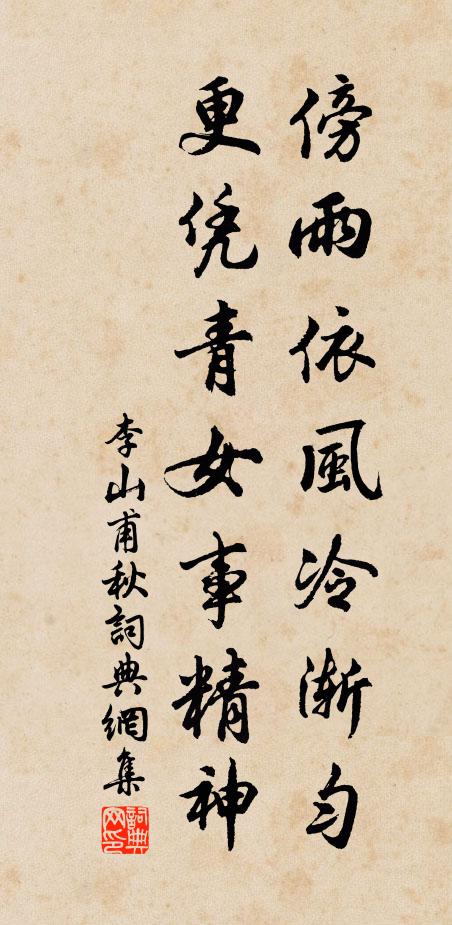 傍雨依風冷漸勻
更凭青女事精神
李山甫秋詞典網集
詞典网印